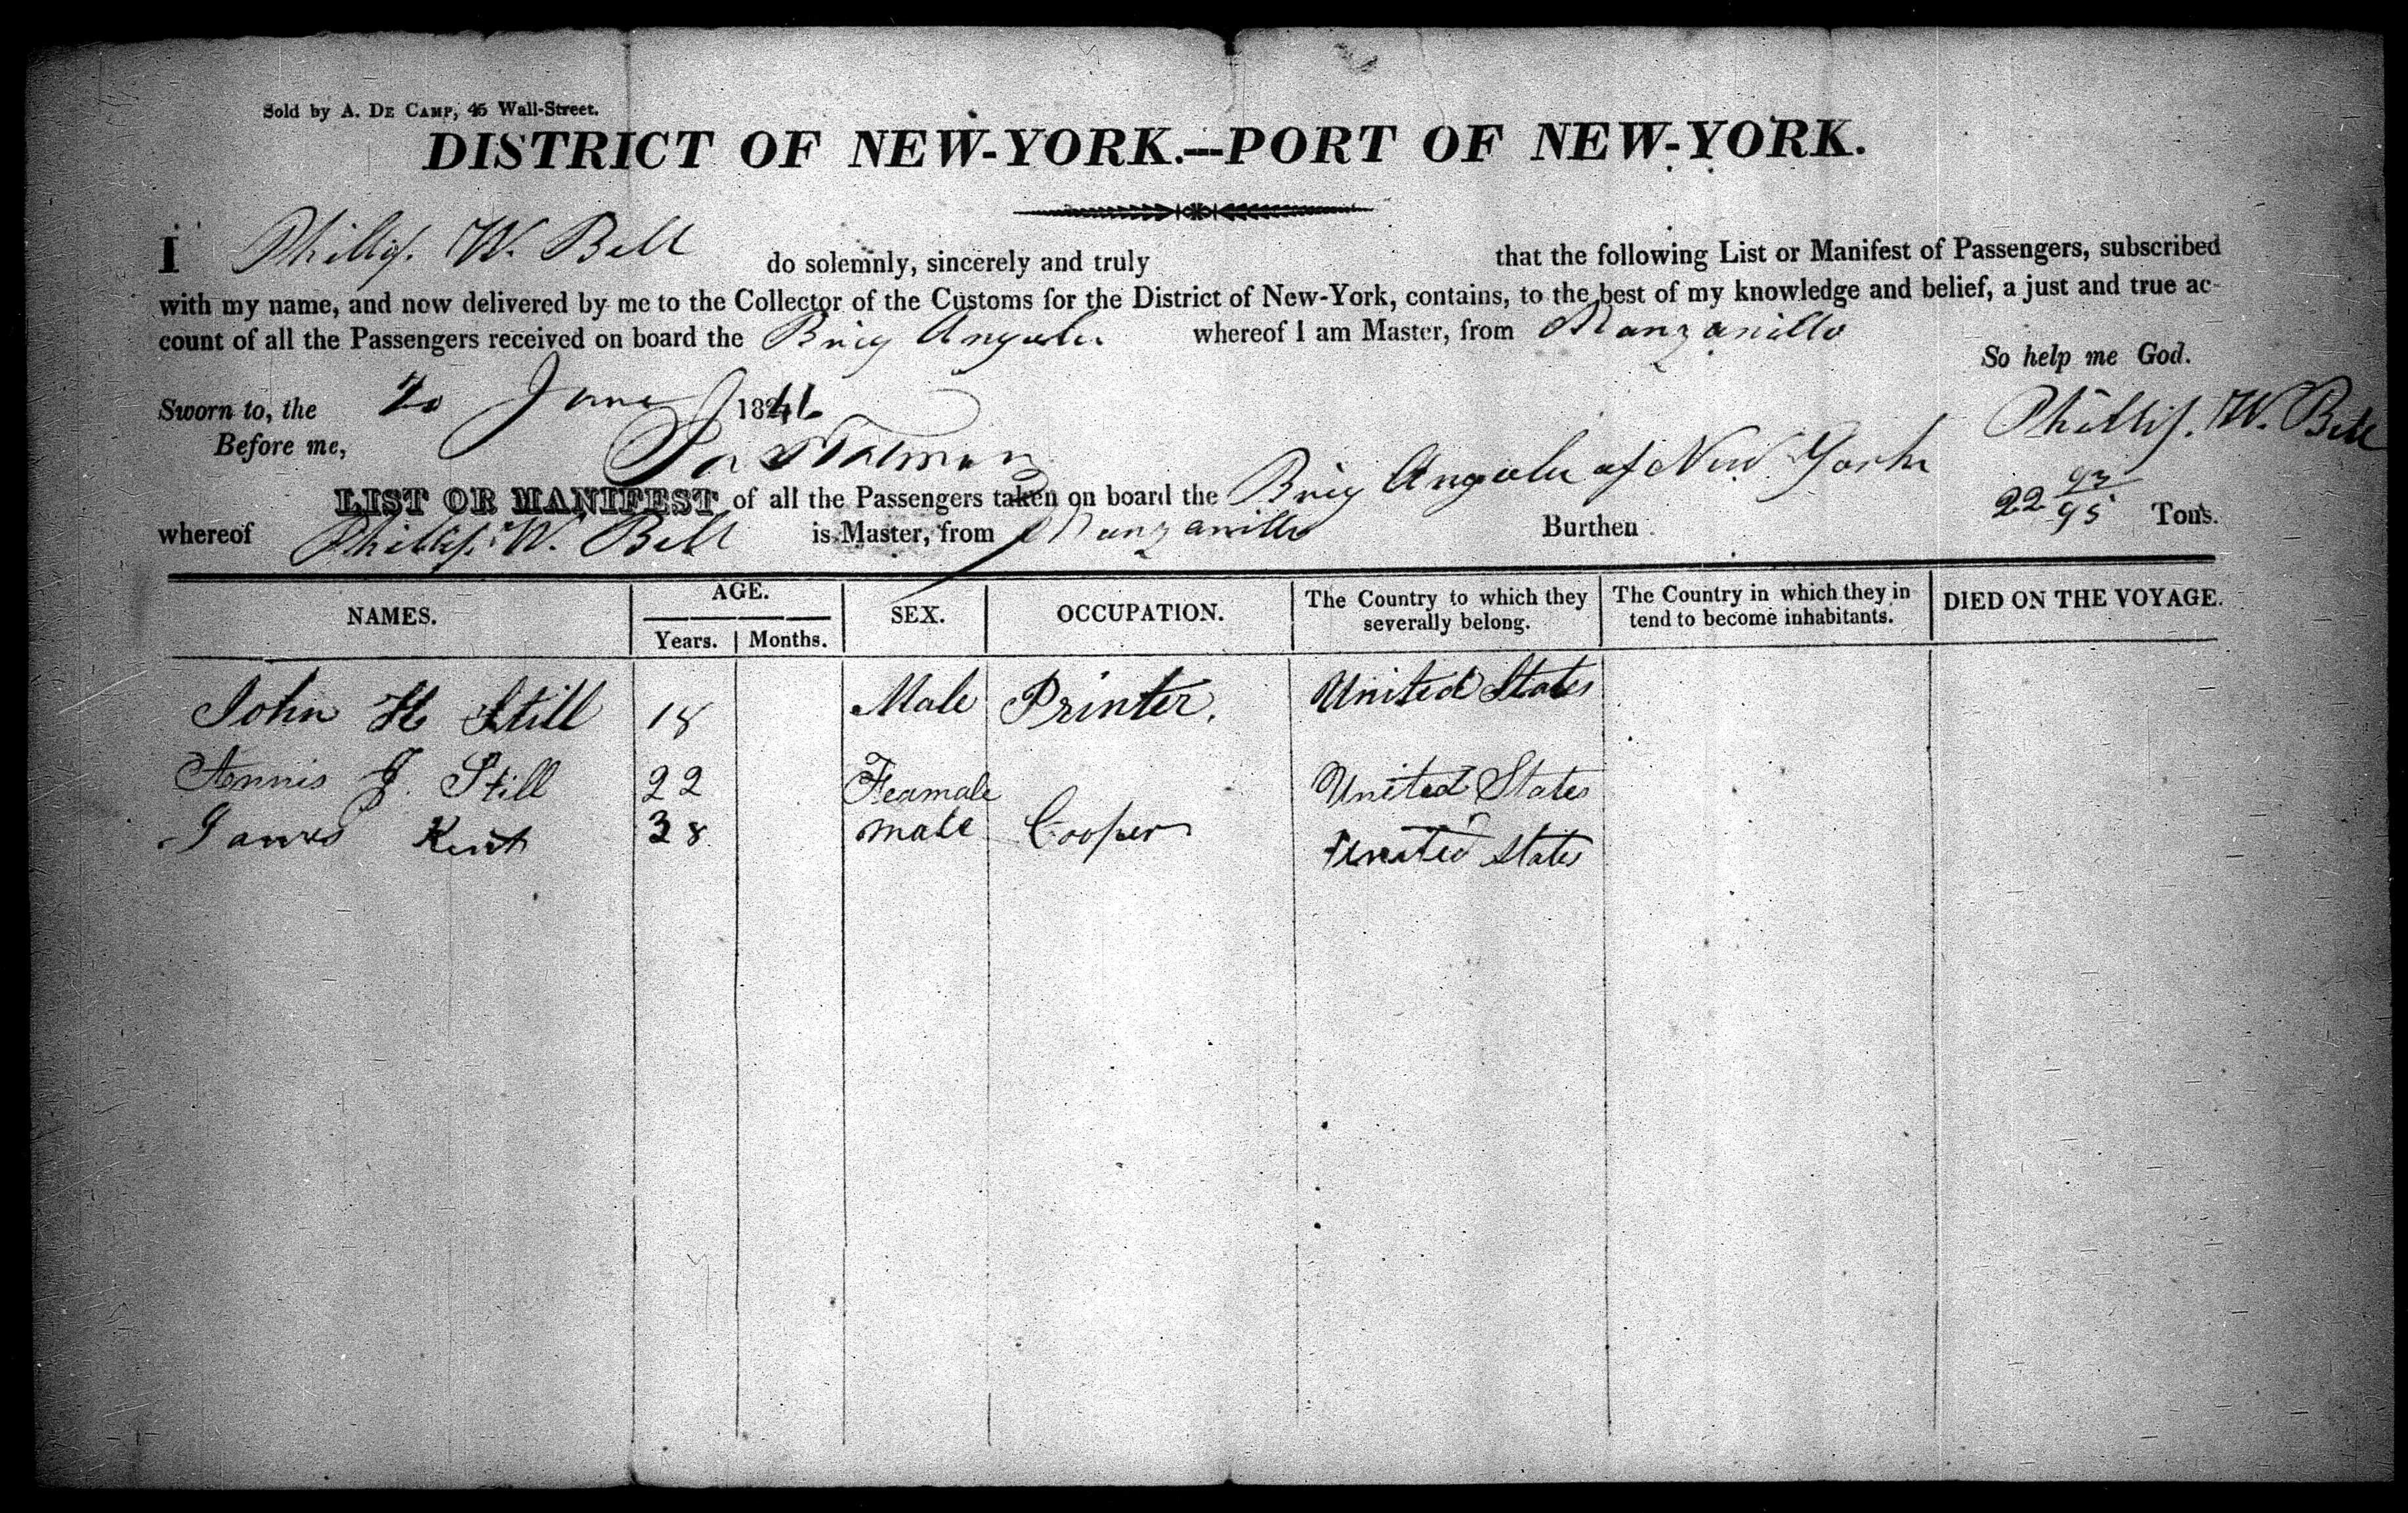 Sold by A. DE CAMP, 45 Wall-Street.
DISTRICT OF NEW-YORK.---PORT OF NEW-YORK.
I Phillip. W. Bell do solemnly, sincerely and truly that the following List or Manifest of Passengers, subscribed
with my name, and now delivered by me to the Collector of the Customs for the District of New-York, contains, to the best of my knowledge and belief, a just and true ac-
count of all the Passengers received on board the Brig Angola whereof I am Master, from Manzanillo
So help me God.
Sworn to, the June 1841 Phillip. W. Bell
Before me,
LIST OR MANIFEST of all the Passengers taken on board the Brig Angola of New York
whereof Phillip. W. Bell is Master, from Manzanillo Burthen Tons.
NAMES. AGE. Years. Months. SEX. OCCUPATION. The Country to which they severally belong. The Country in which they in tend to become inhabitants. DIED ON THE VOYAGE.
John H Still 18 Male Printer. United States
J. Still 22 Feamale United States
James Kent 38 male Cooper United States